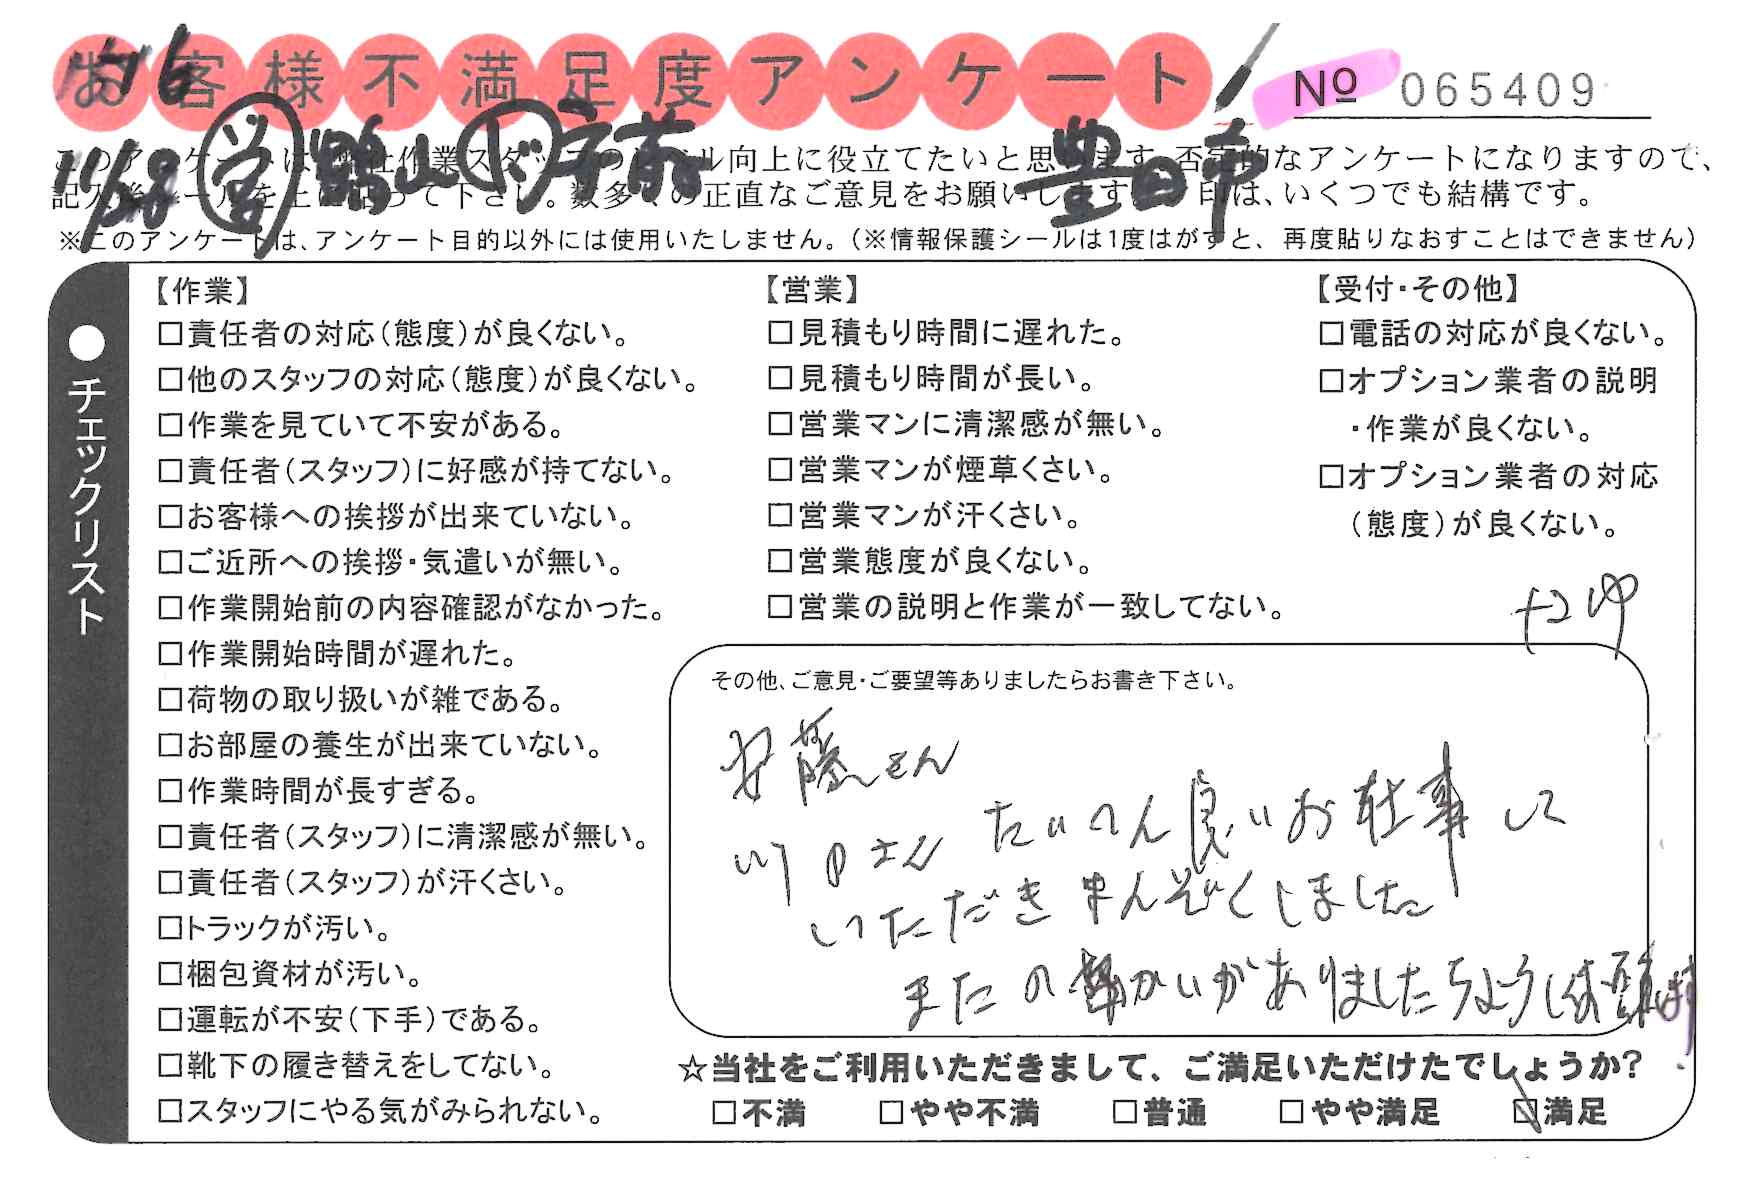 お客様不満足度アンケート
№ 065409
11/16
11/28 鴨山 京都 豊田市
このアンケートは、弊社作業スタッフのレベル向上に役立てたいと思います。否定的なアンケートになりますので、
記入後シールを上に貼って下さい。数多くの正直なご意見をお願いします。レ印は、いくつでも結構です。
※このアンケートは、アンケート目的以外には使用いたしません。(※情報保護シールは1度はがすと、再度貼りなおすことはできません)
●チェックリスト
【作業】
□責任者の対応(態度)が良くない。
□他のスタッフの対応(態度)が良くない。
□作業を見ていて不安がある。
□責任者(スタッフ)に好感が持てない。
□お客様への挨拶が出来ていない。
□ご近所への挨拶・気遣いが無い。
□作業開始前の内容確認がなかった。
□作業開始時間が遅れた。
□荷物の取り扱いが雑である。
□お部屋の養生が出来ていない。
□作業時間が長すぎる。
□責任者(スタッフ)に清潔感が無い。
□責任者(スタッフ)が汗くさい。
□トラックが汚い。
□梱包資材が汚い。
□運転が不安(下手)である。
□靴下の履き替えをしてない。
□スタッフにやる気がみられない。
【営業】
□見積もり時間に遅れた。
□見積もり時間が長い。
□営業マンに清潔感が無い。
□営業マンが煙草くさい。
□営業マンが汗くさい。
□営業態度が良くない。
□営業の説明と作業が一致してない。
【受付・その他】
□電話の対応が良くない。
□オプション業者の説明
・作業が良くない。
□オプション業者の対応
(態度)が良くない。
その他、ご意見・ご要望等ありましたらお書き下さい。
安藤さん
川口さん たいへん良いお仕事して
いただきまんぞくしました
またの かいがありましたらよろしくお願
☆当社をご利用いただきまして、ご満足いただけたでしょうか?
□不満 □やや不満 □普通 □やや満足 ☑満足